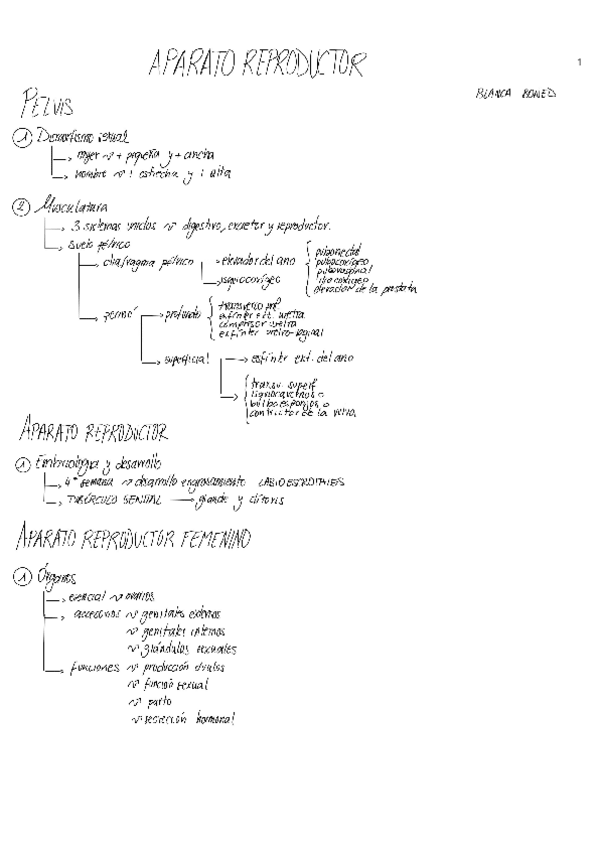 APARATO REPRODUCTOR
1
BLANCA BONED
PELVIS
1 Dimorfismo sexual
mujer ~ + pequeña y + ancha
hombre ~ estrecha y alta
2 Musculatura
3 sistemas unidos ~ digestivo, excretor y reproductor.
suelo pélvico
diafragma pélvico → elevador del ano
puborrectal
pubococcígeo
pubovaginal
iliococcígeo
elevador de la próstata
isquiococcígeo
periné → profundo
transverso prof
esfínter ext. uretra
compresor uretra
esfínter uretro-vaginal
superficial → esfínter ext. del ano
transv. superf
isquiocavernoso
bulboesponjoso
constrictor de la vulva
APARATO REPRODUCTOR
1 Embriología y desarrollo
4ª semana ~ desarrollo engrosamiento LABIOESCROTALES
TUBÉRCULO GENITAL → glande y clítoris
APARATO REPRODUCTOR FEMENINO
1 Órganos
esencial ~ ovarios
accesorios ~ genitales externos
~ genitales internos
~ glándulas sexuales
funciones ~ producción óvulos
~ función sexual
~ parto
~ secreción hormonal